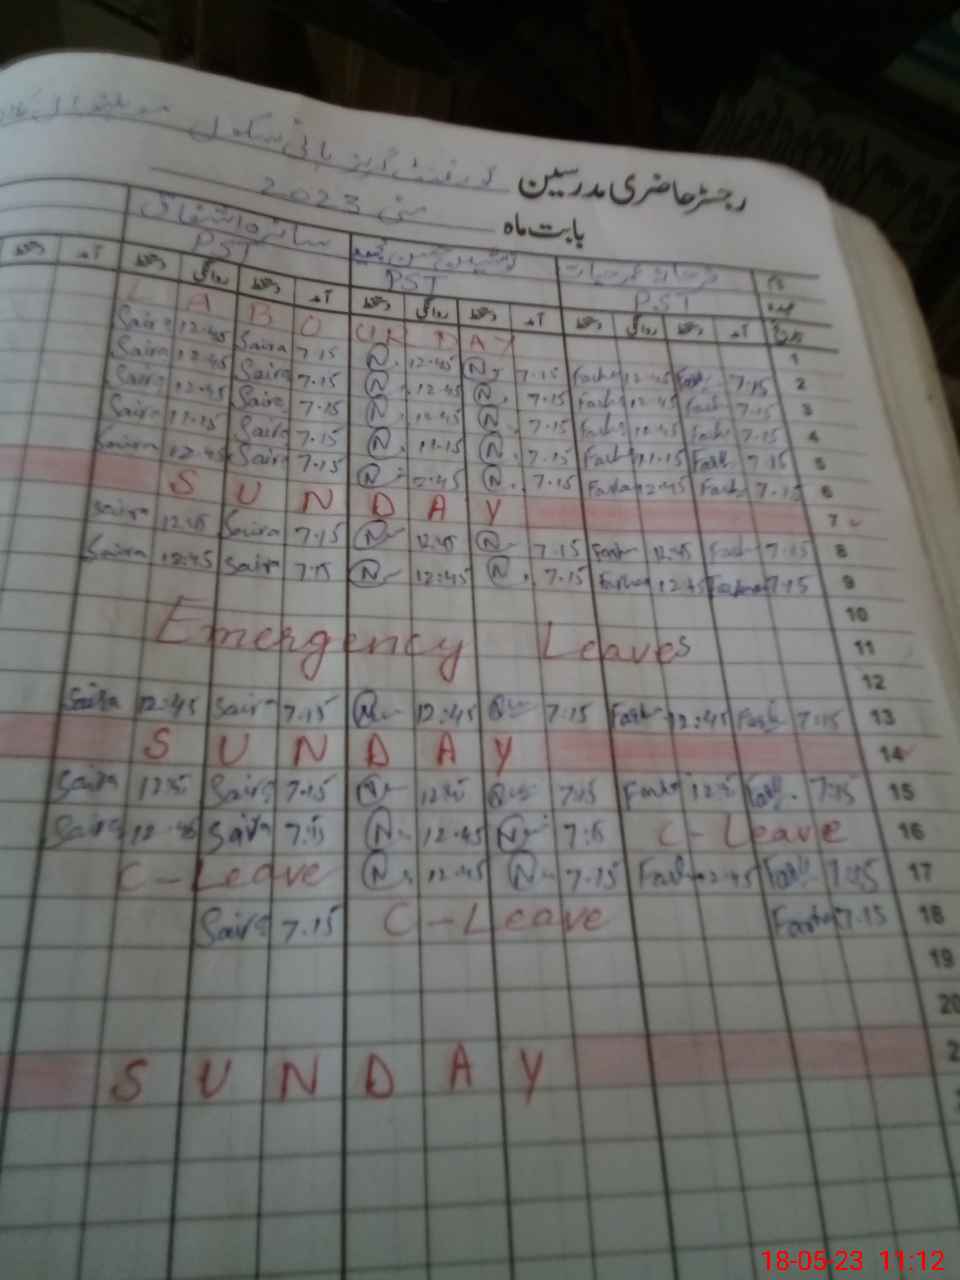 رجسٹر حاضری مدرسین گورنمنٹ گرلز ہائی سکول
بابت ماہ مئی 2023
نام
عہدہ PST PST PST
تاریخ آمد دستخط روانگی دستخط آمد دستخط روانگی دستخط آمد دستخط روانگی دستخط آمد دستخط
1 LABOUR DAY
2 7.15 Farha 12.45 Farha 7.15 N. 12.45 N. 7.15 Saira 12.45 Saira
3 7.15 Farha 12.45 Farha 7.15 N. 12.45 N. 7.15 Saira 12.45 Saira
4 7.15 Farha 12.45 Farha 7.15 N. 12.45 N. 7.15 Saira 12.45 Saira
5 7.15 Farha 11.15 Farha 7.15 N. 11.15 N. 7.15 Saira 11.15 Saira
6 7.15 Farha 12.45 Farha 7.15 N. 12.45 N. 7.15 Saira 12.45 Saira
7 SUNDAY
8 7.15 Farha 12.45 Farha 7.15 N 12.45 N 7.15 Saira 12.45 Saira
9 7.15 Farha 12.45 Farha 7.15 N. 12:45 N 7.15 Saira 12.45 Saira
10
11 Emergency Leaves
12
13 7.15 Farha 12:45 Farha 7.15 N 12:45 N 7.15 Saira 12:45 Saira
14 SUNDAY
15 7.15 Farha 12.45 Farha 7.15 N 12.45 N 7.15 Saira 12.45 Saira
16 C-Leave 7.15 N 12.45 N 7.15 Saira 12.45 Saira
17 7.15 Farha 12.45 Farha 7.15 N 12.45 N C-Leave
18 7.15 Farha C-Leave 7.15 Saira
19
20
2 SUNDAY
18-05-23 11:12